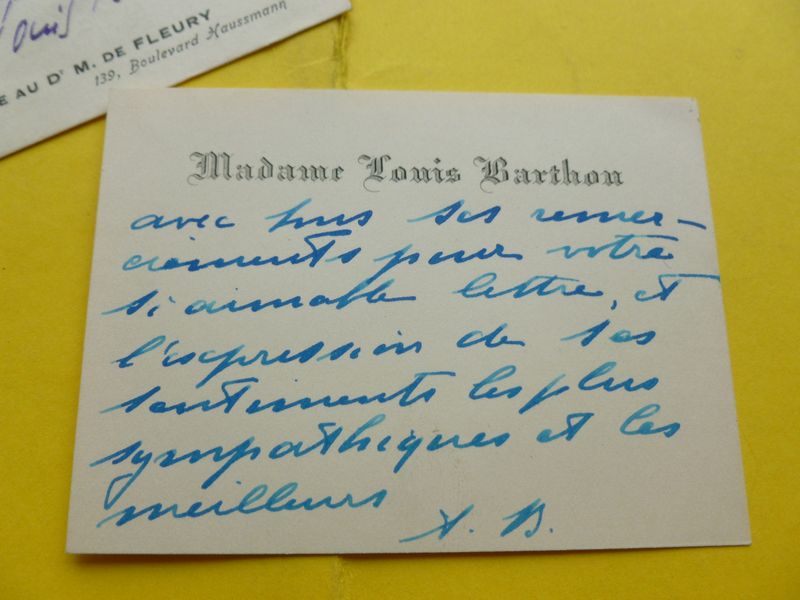 E AU Dʳ M. DE FLEURY
139, Boulevard Haussmann
Madame Louis Barthou
avec tous ses remer-
ciements pour votre
si aimable lettre, et
l'expression de ses
sentiments les plus
sympathiques et les
meilleurs
A. B.